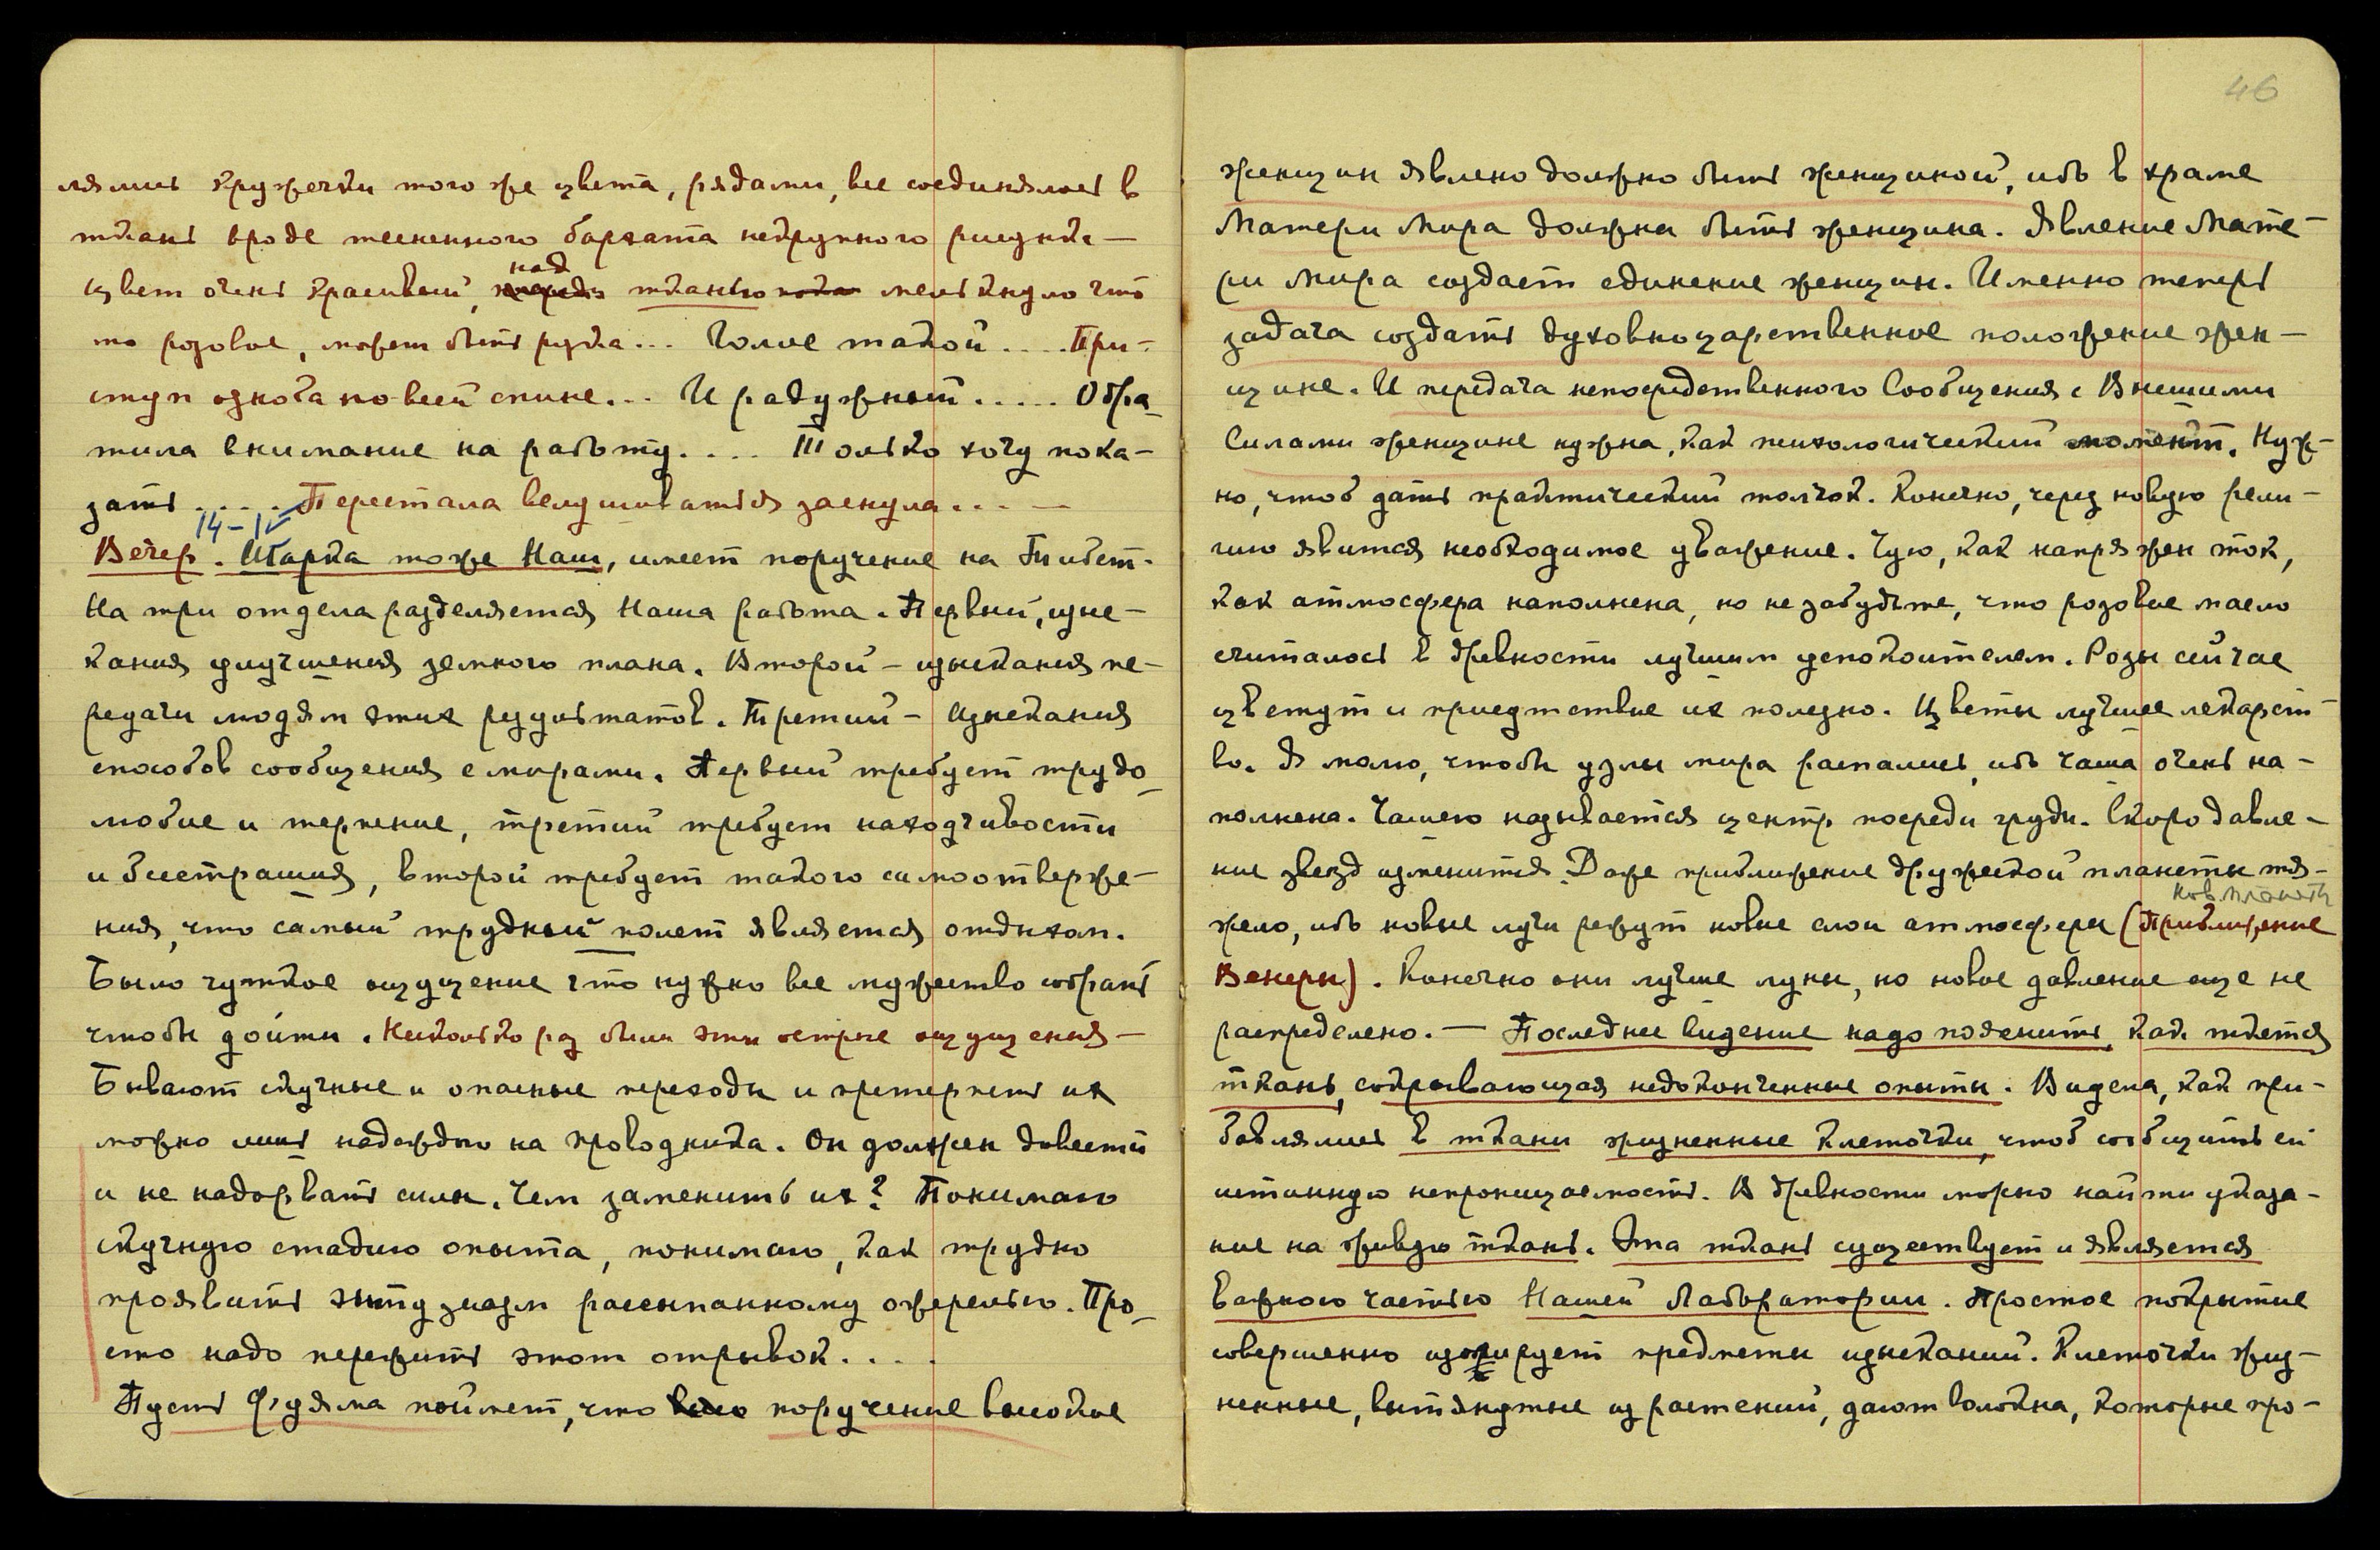 лялись кружечки того же цвета, рядами, все соединялось в
ткань вроде тесненного бархата некрупного рисунка —
над
цвет очень красивый, тканью мелькнуло что
то розовое, может быть рука... Голос такой.... При-
ступ озноба по всей спине... И радужный..... Обра-
тила внимание на работу.... Только хочу пока-
зать..... Перестала вслушиваться заснула... —
14-1
Вечер. Шарка тоже Наш, имеет поручение на Тибет.
На три отдела разделяется Наша работа. Первый, изыс-
кания улучшения земного плана. Второй — изыскания пе-
редачи людям этих результатов. Третий — Изыскания
способов сообщения с мирами. Первый требует трудо-
любие и терпение, третий требует находчивости
и бесстрашия, второй требует такого самоотверже-
ния, что самый трудный полет является отдыхом.
Было чуткое ощущение что нужно все мужество собрать
чтобы дойти. Несколько раз были эти острые ощущения —
Бывают скучные и опасные переходы и претерпеть их
можно лишь надеждою на проводника. Он должен довести
и не надорвать силы. Чем заменить их? Понимаю
скучную стадию опыта, понимаю, как трудно
проявить глазам рассыпанному ожерелью. Про-
сто надо пережить этот отрывок....
Пусть Фуяма поймет, что поручение высокое
46
женщин явлено должно быть женщиной, ибо в храме
Матери Мира должна быть женщина. Явление Мате-
ри Мира создает единение женщин. Именно теперь
задача создать духовноцарственное положение жен-
щине. И передача непосредственного Сообщения с Высшими
Силами женщине нужна, как психологический момент. Нуж-
но, чтоб дать практический толчок. Конечно, через новую рели-
гию явится необходимое уважение. Чую, как напряжен ток,
как атмосфера наполнена, но не забудьте, что розовое масло
считалось в древности лучшим успокоителем. Розы сейчас
цветут и присутствие их полезно. Цветы лучшее лекарст-
во. Я молю, чтобы узлы мира распались, ибо чаша очень на-
полнена. Чашею называется центр посреди груди. Скоро давле-
ние звезд изменится. Даже приближение дружеской планеты тя-
нов. планеты
жело, ибо новые лучи режут новые слои атмосферы (Приближение
Венеры). Конечно они лучше луны, но новое давление еще не
распределено. — Последнее видение надо пояснить, как ткется
ткань, сокрывающая недоконченные опыты. Видела, как при-
бавлялись в ткани жизненные клеточки, чтоб сообщить ей
истинную непроницаемость. В древности можно найти указа-
ние на живую ткань. Эта ткань существует и является
важною частью Нашей Лаборатории. Простое покрытие
совершенно изолирует предметы изысканий. Клеточки жиз-
ненные, вытянутые из растений, дают волокна, которые про-